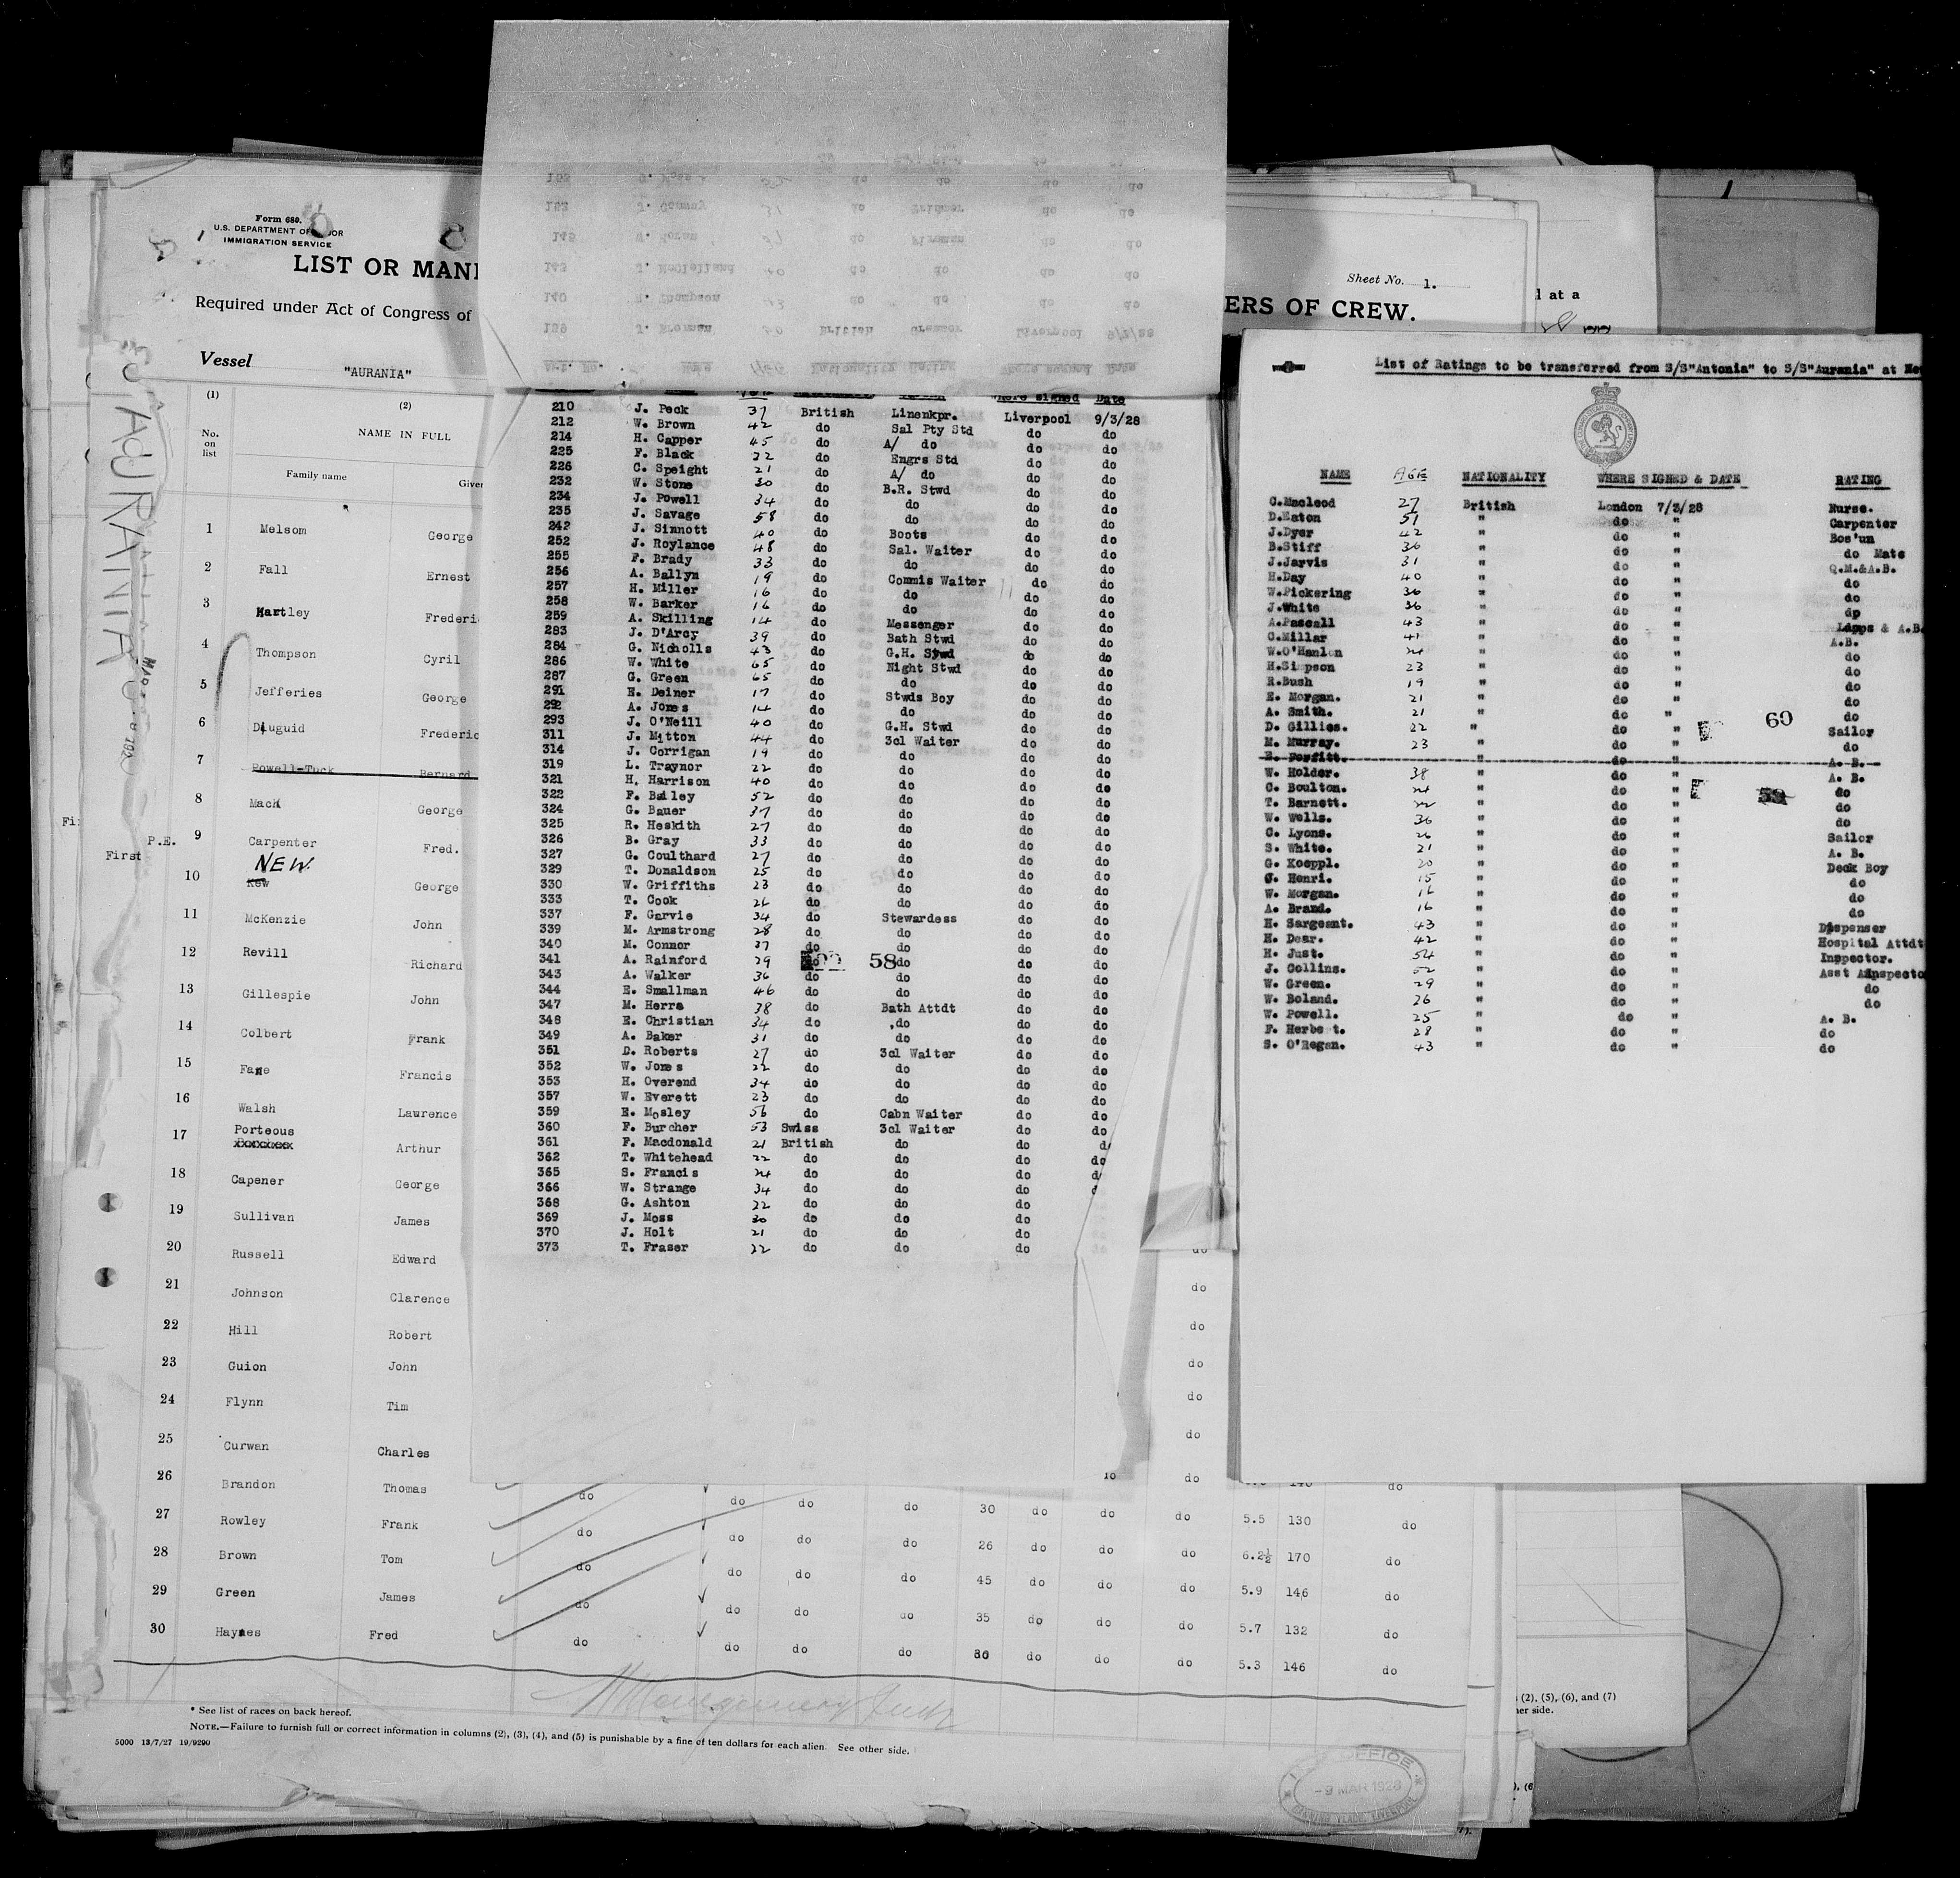 Form 680.
U.S. DEPARTMENT OF
IMMIGRATION SERVICE
LIST OR MANI
Required under Act of Congress of
Vessel "AURANIA"
AURANIA
ERS OF CREW.
Sheet No. 1.
l at a
(1) (2)
No. on list NAME IN FULL
Family name Given
1 Melsom George
2 Fall Ernest
3 Hartley Frederi
4 Thompson Cyril
5 Jefferies George
6 Diuguid Frederic
7 Powell-Tuck Bernard
8 Mack George
P.E. 9 Carpenter Fred.
First
NEW
10 New George
11 McKenzie John
12 Revill Richard
13 Gillespie John
14 Colbert Frank
15 Fane Francis
16 Walsh Laurence
17 Porteous Arthur
18 Capener George
19 Sullivan James
20 Russell Edward
21 Johnson Clarence
22 Hill Robert
23 Guion John
24 Flynn Tim
25 Curwan Charles
26 Brandon Thomas do do do do 30 do do do 5.5 130 do
27 Rowley Frank do do do do 26 do do do 6.2½ 170 do
28 Brown Tom do do do do 45 do do do 5.9 146 do
29 Green James do do do do 35 do do do 5.7 132 do
30 Haynes Fred do do do do 30 do do do 5.3 146 do
* See list of races on back hereof.
NOTE.—Failure to furnish full or correct information in columns (2), (3), (4), and (5) is punishable by a fine of ten dollars for each alien. See other side.
5000 13/7/27 19/9290
(2), (5), (6), and (7)
her side.
OFFICE
-9 MAR 1928
CANNING PLACE, LIVERPOOL
Where signed Date
210 J. Peck 37 British Linenkpr. Liverpool 9/3/28
212 W. Brown 42 do Sal Pty Std do do
214 H. Capper 45 do A/ do do do
225 F. Black 22 do Engrs Std do do
226 C. Speight 21 do A/ do do do
232 W. Stone 30 do B.R. Stwd do do
234 J. Powell 34 do do do do
235 J. Savage 58 do do do do
242 J. Sinnott 40 do Boots do do
252 J. Roylance 48 do Sal. Waiter do do
255 F. Brady 33 do do do do
256 A. Ballyn 19 do Commis Waiter do do
257 H. Miller 16 do do do do
258 W. Barker 16 do do do do
259 A. Skilling 14 do Messenger do do
283 J. D'Arcy 39 do Bath Stwd do do
284 G. Nicholls 43 do G.H. Stwd do do
286 W. White 65 do Night Stwd do do
287 G. Green 65 do do do do
291 E. Deiner 17 do Stwds Boy do do
292 A. Jones 14 do do do do
293 J. O'Neill 40 do G.H. Stwd do do
311 J. Mitton 44 do 3cl Waiter do do
314 J. Corrigan 19 do do do do
319 L. Traynor 22 do do do do
321 H. Harrison 40 do do do do
322 F. Bailey 52 do do do do
324 G. Bauer 37 do do do do
325 R. Heskith 27 do do do do
326 B. Gray 33 do do do do
327 G. Coulthard 27 do do do do
329 T. Donaldson 25 do do do do
330 W. Griffiths 23 do do do do
333 T. Cook 26 do do do do
337 F. Garvie 34 do Stewardess do do
339 M. Armstrong 28 do do do do
340 M. Connor 37 do do do do
341 A. Rainford 29 do 58 do do do
343 A. Walker 36 do do do do
344 E. Smallman 46 do do do do
347 M. Herra 38 do Bath Attdt do do
348 E. Christian 34 do do do do
349 A. Baker 31 do do do do
351 D. Roberts 27 do 3cl Waiter do do
352 W. Jones 22 do do do do
353 H. Overend 34 do do do do
357 W. Everett 23 do do do do
359 E. Mosley 56 do Cabn Waiter do do
360 F. Burcher 53 Swiss 3cl Waiter do do
361 F. Macdonald 21 British do do d
362 T. Whitehead 22 do do do do
365 S. Francis 24 do do do d
366 W. Strange 34 do do do
368 G. Ashton 22 do do do
369 J. Moss 30 do do do
370 J. Holt 21 do do do
373 T. Fraser 22 do do do
List of Ratings to be transferred from S/S"Antonia" to S/S"Aurania" at Ne
NAME AGE NATIONALITY WHERE SIGNED & DATE RATING
C.Macleod 27 British London 7/3/28 Nurse.
D.Eaton 51 " do " Carpenter
J.Dyer 42 " do " Bos'un
B.Stiff 36 " do " do Mate
J.Jarvis 31 " do " Q.M.&A.B.
H.Day 40 " do " do
W.Pickering 36 " do " do
J.White 36 " do " do
A.Pascall 43 " do " Lamps & A.B.
C.Millar 41 " do " A.B.
W.O'Hanlon 24 " do " do
H.Simpson 23 " do " do
R.Bush 19 " do " do
E. Morgan. 21 " do " do
A. Smith. 21 " do " do
D. Gillies. 22 " do " Sailor
60
M. Murray. 23 " do " do
E. Porfitt. " do " A. B.
W. Holder. 38 " do " A. B.
C. Boulton. 24 " do " do
59
T. Barnett. 22 " do " do
W. Wells. 36 " do " do
C. Lyons. 26 " do " Sailor
S. White. 21 " do " A. B.
G. Koeppl. 20 " do " Deck Boy
J. Henri. 15 " do " do
W. Morgan. 16 " do " do
A. Brand. 16 " do " do
H. Sargeant. 43 " do " Dispenser
H. Dear. 42 " do " Hospital Attdt
H. Just. 54 " do " Inspector.
J. Collins. 52 " do " Asst Inspecto
W. Green. 29 " do " do
W. Boland. 26 " do " do
W. Powell. 25 " do " A. B.
F. Herbert. 28 " do " do
S. O'Regan. 43 " do " do